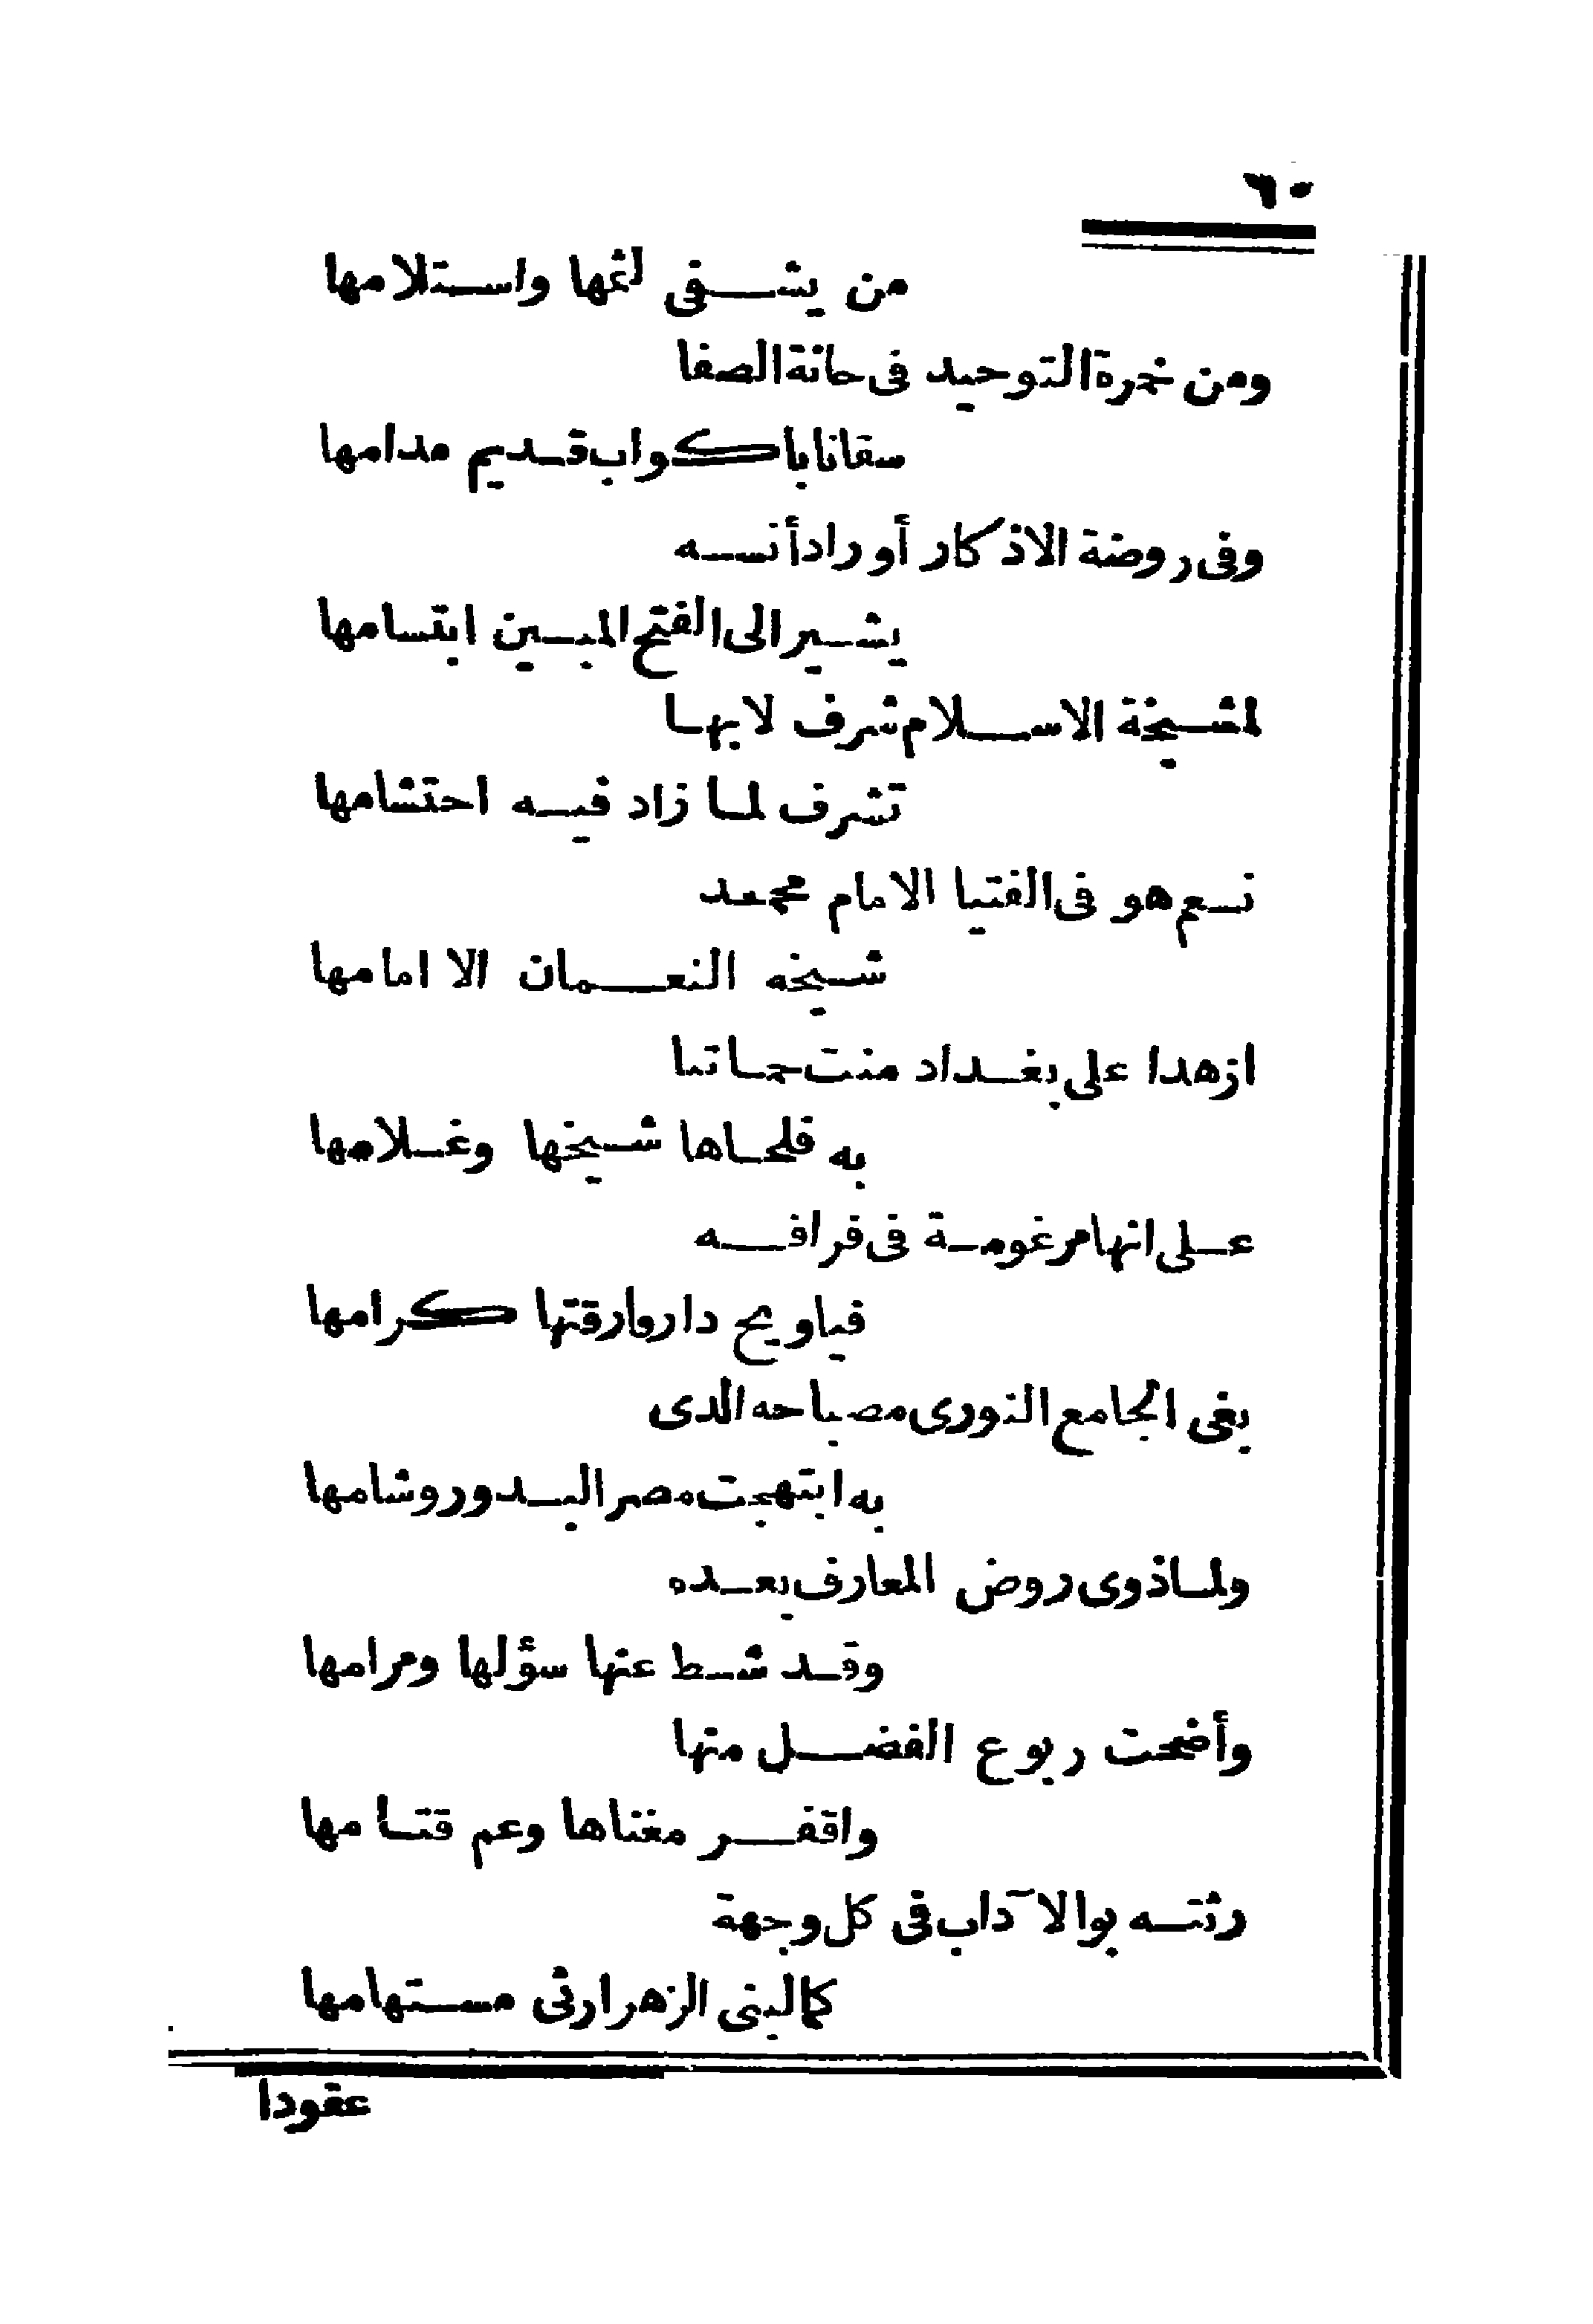 ٦٠
من يشفى لثمها واستلامها
ومن خمرة التوحيد فى حانة الصفا
سقانا باكواب قديم مدامها
وفى روضة الاذكار أوراد أنسه
يشير الى الفتح المبين ابتسامها
لمشيخة الاسلام شرف لابها
تشرف لما زاد فيه احتشامها
نعم هو فى الفتيا الامام محمد
شيخه النعمان الا امامها
ازهدا على بغداد منت حماتنا
به فلحاها شيخها وغلامها
على انها مرغومة فى فراقه
فياويح دار وارقتها كرامها
بغى الجامع النورى مصباحه الدى
به ابتهجت مصر البدور وشامها
ولما ذوى روض المعارف بعده
وقد شط عنها سؤلها ومرامها
وأضحت ربوع الفضل منها
واقفر مغناها وعم قتامها
رثته بوالآداب فى كل وجهة
كمالبنى الزهرارثى مستهامها
عقودا